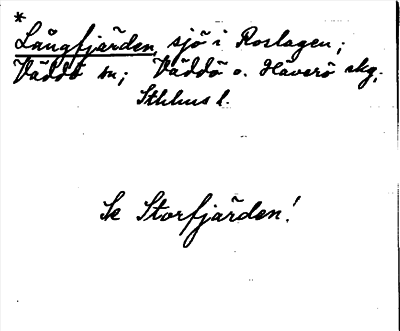 *
Långfjärden, sjö i Roslagen;
Väddö sn; Väddö o. Häverö skg,
Sthlms l.
Se Storfjärden!